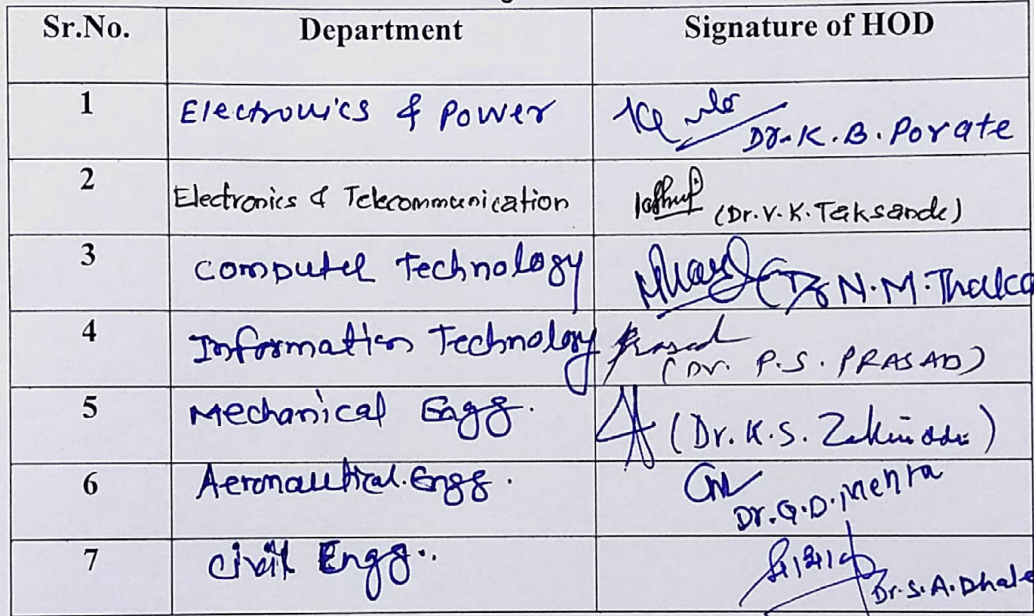 Sr.No. Department Signature of HOD
1 Electronics & Power Dr. K. B. Porate
2 Electronics & Telecommunication (Dr. V. K. Taksande)
3 Computer Technology (Dr N. M. Thak
4 Information Technology Prasad
(Dr. P. S. PRASAD)
5 Mechanical Engg. (Dr. K. S.
6 Aeronautical Engg.
Dr. G. D. Mehta
7 Civil Engg.
Dr. S. A. Dhale